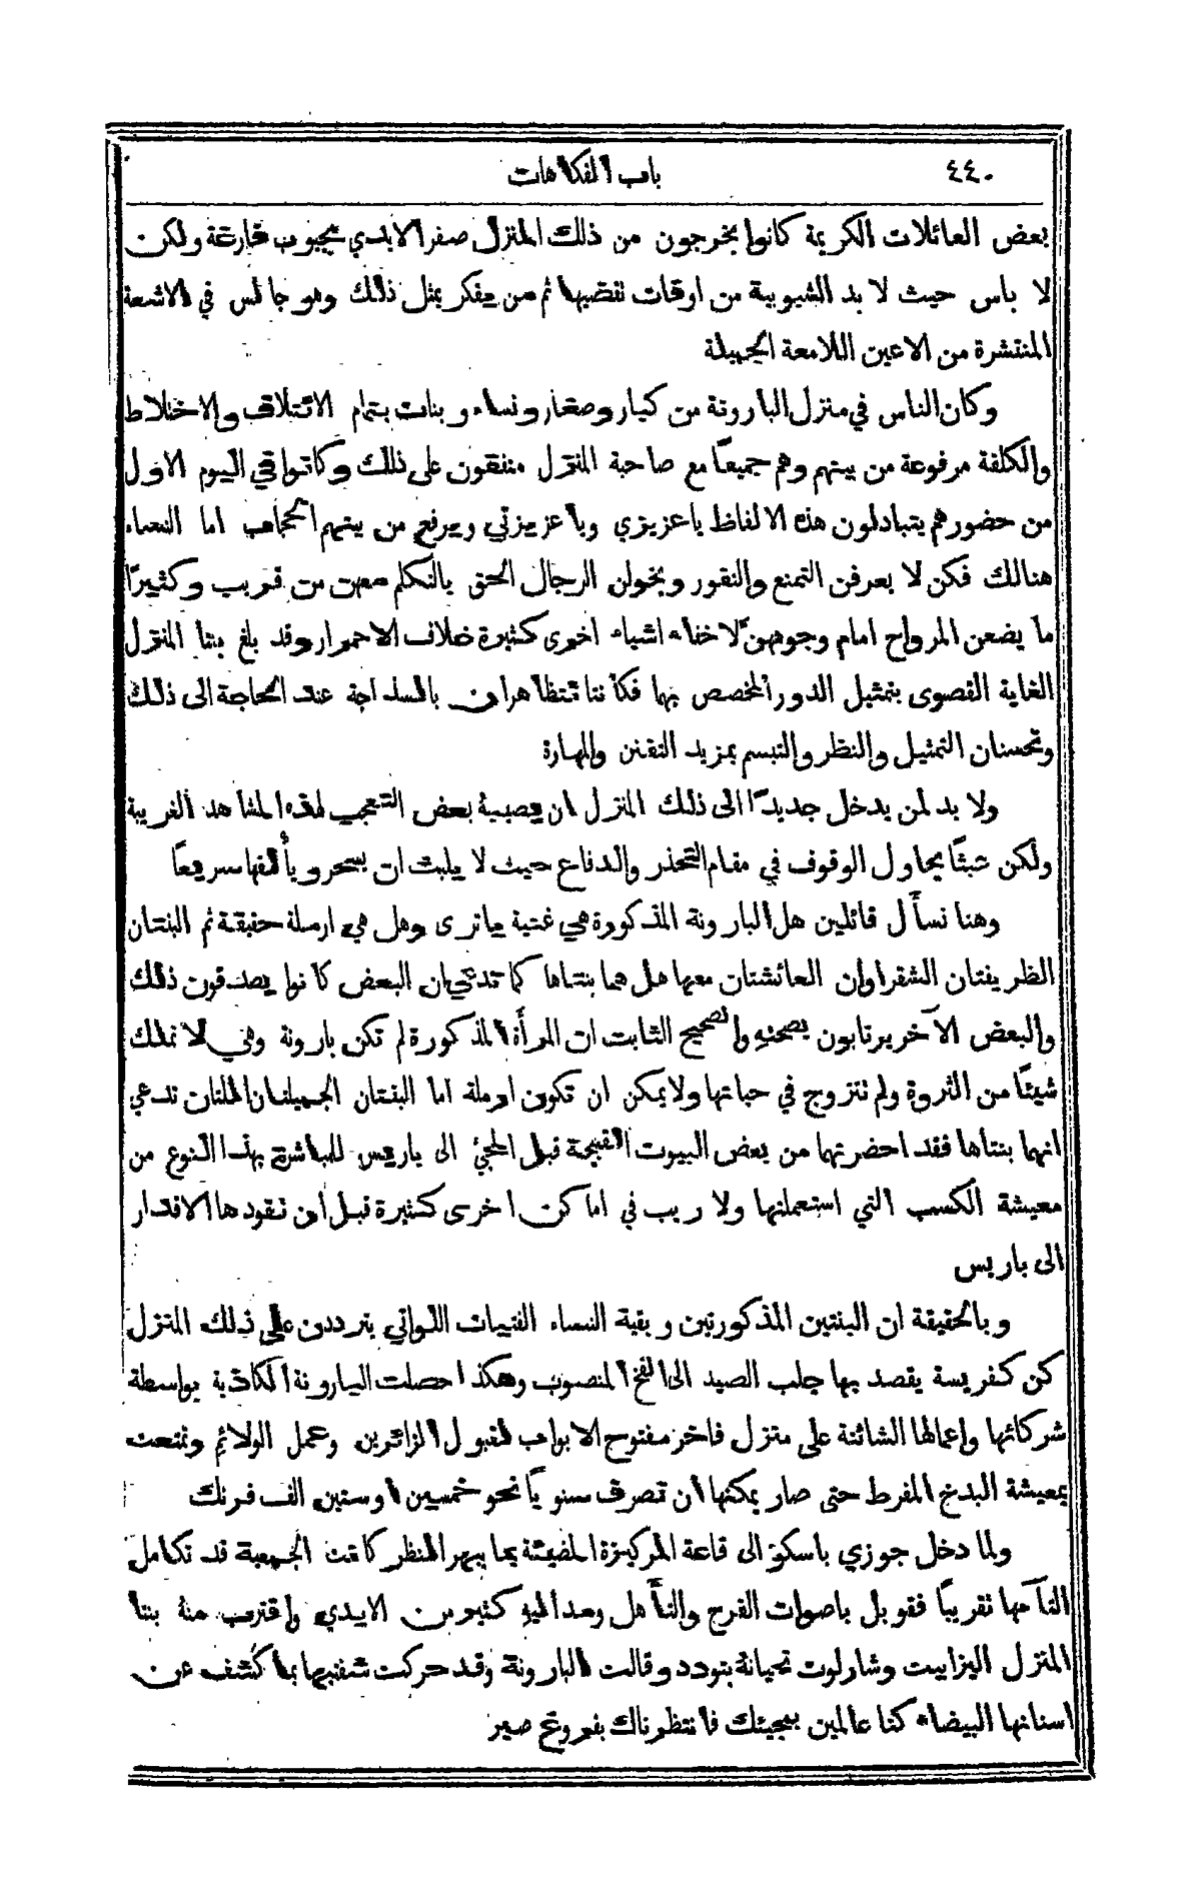 ٤٤٠ باب الفكاهات
بعض العائلات الكريمة كانوا يخرجون من ذلك المنزل صفر الايدي بجيوب فارغة ولكن
لا باس حيث لا بد للشبوبية من اوقات نقضيها ثم من يفكر بمثل ذلك وهو جالس في الاشعة
المنتشرة من الاعين اللامعة الجميلة
وكان الناس في منزل البارونة من كبار وصغار ونساء وبنات بتمام الائتلاف والاختلاط
والكلفة مرفوعة من بينهم وهم جميعًا مع صاحبة المنزل متفقون على ذلك وكانوا في اليوم الاول
من حضورهم يتبادلون هذه الالفاظ يا عزيزي ويا عزيزتي ويرفع من بينهم الحجاب اما النساء
هنالك فكن لا يعرفن التمنع والنفور ويخولن الرجال الحق بالتكلم معهن من قريب وكثيرًا
ما يضعن المرواح امام وجوههنَّ لاخفاء اشياء اخرى كثيرة خلاف الاحمرار وقد بلغ بنتا المنزل
الغاية القصوى بتمثيل الدور المخصص بها فكانتا تتظاهران بالسذاجة عند الحاجة الى ذلك
وتحسنان التمثيل والنظر والتبسم بمزيد التفنن والمهارة
ولا بد لمن يدخل جديدًا الى ذلك المنزل ان يصيبهُ بعض التعجب لهذه المشاهد الغريبة
ولكن عبثًا يحاول الوقوف في مقام التحذر والدفاع حيث لا يلبث ان يسحر ويألفها سريعًا
وهنا نسأل قائلين هل البارونة المذكورة هي غنية يا ترى وهل هي ارملة حقيقة ثم البنتان
الظريفتان الشقراوان العائشتان معها هل هما بنتاها كما تدعي ان البعض كانوا يصدقون ذلك
والبعض الآخر يرتابون بصحتهِ والصحيح الثابت ان المرأة المذكورة لم تكن بارونة وهي لا تملك
شيئًا من الثروة ولم تتزوج في حياتها ولا يمكن ان تكون ارملة اما البنتان الجميلتان اللتان تدعي
انهما بنتاها فقد احضرتهما من بعض البيوت القبيحة قبل المجئ الى باريس للمباشرة بهذا النوع من
معيشة الكسب التي استعملتها ولا ريب في اماكن اخرى كثيرة قبل ان تقودها الاقدار
الى باريس
وبالحقيقة ان البنتين المذكورتين وبقية النساء الفتيات اللواتي يترددن على ذلك المنزل
كن كفريسة يقصد بها جلب الصيد الى الفخ المنصوب وهكذا حصلت البارونة الكاذبة بواسطة
شركائها واعمالها الشائنة على منزل فاخر مفتوح الابواب لقبول الزائرين وعمل الولائم وتمتعت
بمعيشة البذخ المفرط حتى صار يمكنها ان تصرف سنويًا نحو خمسين او ستين الف فرنك
ولما دخل جوزي باسكو الى قاعة المركيزة المضيئة بما يبهر المنظر كانت الجمعية قد تكامل
التآمها تقريبًا فقوبل باصوات الفرح والتأهل ومد اليهِ كثير من الايدي واقترب منهُ بنتا
المنزل اليزابيت وشارلوت تحيانهُ بتودد وقالت البارونة وقد حركت شفتيها بما كشف عن
اسنانها البيضاء كنا عالمين بمجيئك فانتظرناك بفروغ صبر